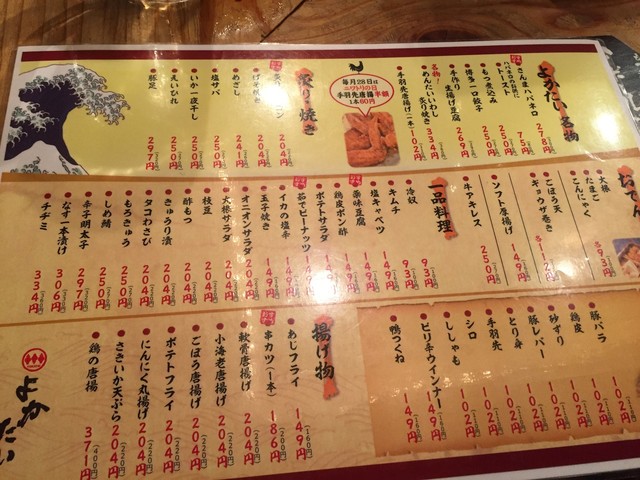 よかたい名物
さんまいハバネロ 278円
ハバネロのお供に
トースト 75円
もつ煮込み 250円
博多一口餃子 269円
手作り生揚げ豆腐
名物!
めんたいいわし 334円
手羽先唐揚げ一本 102円
毎月28日は
ニワトリの日
手羽先唐揚半額
1本60円
炙り・焼き
204円
げそ焼き 204円
めざし 204円
塩サバ 250円
いか一夜干し 250円
えいひれ 250円
豚足 297円
大根
たまご
こんにゃく 各93円
ごぼう天
ギョウザ巻き 各112円
ソフト厚揚げ 149円
牛アキレス 250円
一品料理
冷奴 93円
キムチ 93円
塩キャベツ 149円
薬味豆腐 149円
鶏皮ポン酢 149円
ポテトサラダ 149円
茹でピーナッツ 149円
イカの塩辛 149円
玉子焼き 149円
オニオンサラダ 204円
大根サラダ 204円
枝豆 204円
酢もつ 204円
きゅうり漬 204円
タコわさび 204円
もろきゅう 250円
しめ鯖 250円
辛子明太子 297円
なす一本漬け 306円
チヂミ 334円
豚バラ 102円
鶏皮 102円
砂ずり 102円
豚レバー 102円
とり身 102円
手羽先 102円
シロ 102円
ししゃも 102円
ピリ辛ウインナー 149円
鴨つくね 149円
揚げ物
あじフライ 149円(160円)
串カツ(一本) 186円(200円)
軟骨唐揚げ 204円(220円)
小海老唐揚げ 204円(220円)
ごぼう唐揚げ 204円(220円)
ポテトフライ 204円(220円)
にんにく丸揚げ 204円(220円)
さきいか天ぷら 204円(220円)
鶏の唐揚 371円(400円)
よかたい